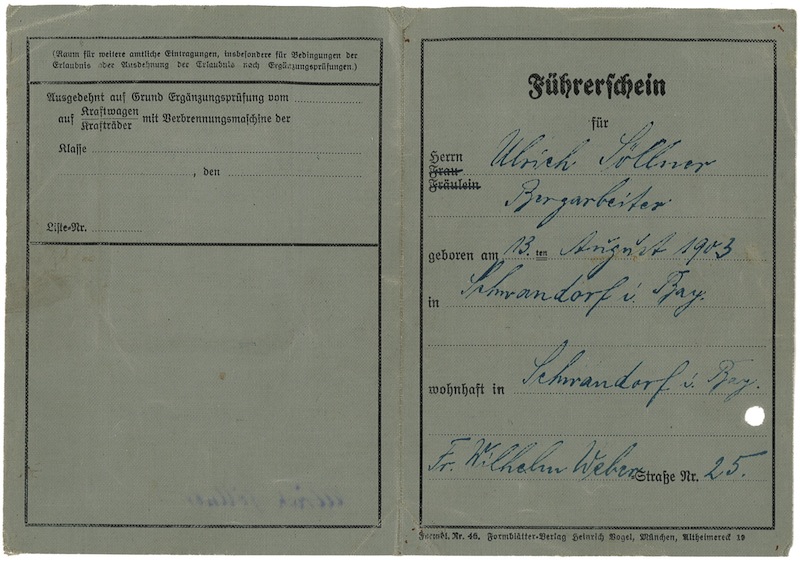 (Raum für weitere amtliche Eintragungen, insbesondere für Bedingungen der
Erlaubnis oder Ausdehnung der Erlaubnis nach Ergänzungsprüfungen.)
Ausgedehnt auf Grund Ergänzungsprüfung vom
auf Kraftwagen
Krafträder mit Verbrennungsmaschine der
Klasse
, den
Liste-Nr.
Führerschein
für
Herrn Ulrich Söllner
Frau
Fräulein
Bergarbeiter
geboren am 13. ten August 1903
in Schwandorf i. Bay.
wohnhaft in Schwandorf i. Bay.
Fr. Wilhelm Weber Straße Nr. 25.
Formbl. Nr. 46. Formblätter-Verlag Heinrich Vogel, München, Altheimereck 19